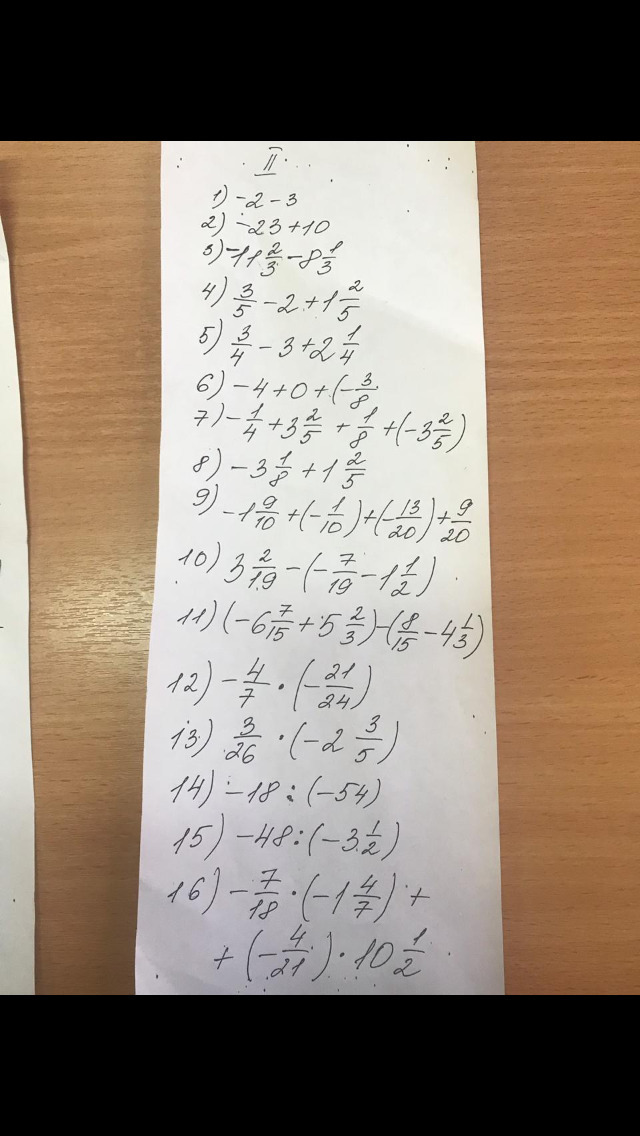 II
1) -2 - 3
2) -23 + 10
3) -11 2/3 - 8 1/3
4) 3/5 - 2 + 1 2/5
5) 3/4 - 3 + 2 1/4
6) -4 + 0 + (-3/8
7) -1/4 + 3 2/5 + 1/8 + (-3 2/5)
8) -3 1/8 + 1 2/5
9) -1 9/10 + (-1/10) + (-13/20) + 9/20
10) 3 2/19 - (-7/19 - 1 1/2)
11) (-6 7/15 + 5 2/3) - (8/15 - 4 1/3)
12) -4/7 · (-21/24)
13) 3/26 · (-2 3/5)
14) -18 : (-54)
15) -48 : (-3 1/2)
16) -7/18 · (-1 4/7) +
+ (-4/21) · 10 1/2